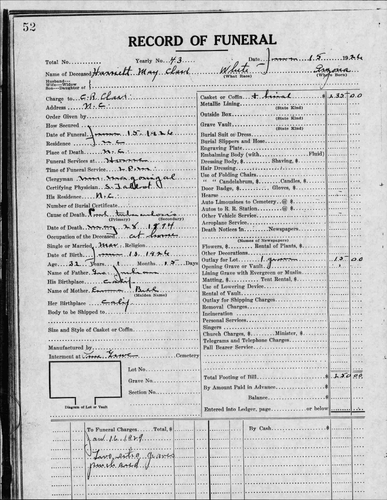 52
RECORD OF FUNERAL
Total No. Yearly No. 43 Date 15 1926
Name of Deceased Harriett May Claus White
(What Race) (Where Born)
Husband—
Wife—Widow
Son—Daughter of
Charge to C.R. Claus
Address N.C.
Order Given by
How Secured
Date of Funeral 15, 1926
Residence N.C.
Place of Death N.C.
Funeral Services at Home
Time of Funeral Services 2 P.M.
Clergyman
Certifying Physician S. Talbot
His Residence N.C.
Number of Burial Certificate
Cause of Death tuberculosis
(Primary) (Secondary)
Date of Death May 28 1894
Occupation of the Deceased at home
Single or Married Mar. Religion
Date of Birth 13, 1926
Age, 32 Years 1 Months 15 Days
Name of Father Geo.
His Birthplace Calif
Name of Mother Emma
(Maiden Name)
Her Birthplace Calif
Body to be Shipped to
Size and Style of Casket or Coffin
Manufactured by
Interment at Cemetery
Lot No.
Grave No.
Section No.
Diagram of Lot or Vault
Casket or Coffin + burial $ 235 00
(State Kind)
Metallic Lining
(State Kind)
Outside Box
(State Kind)
Grave Vault
(State Kind)
Burial Suit or Dress
Burial Slippers and Hose
Engraving Plate
Embalming Body (with Fluid)
Dressing Body, $ Shaving, $
Hair Dressing
Use of Folding Chairs
" " Candelabrum, $ Candles, $
Door Badge, $ Gloves, $
Hearse
Auto Limousines to Cemetery @ $
Autos to R. R. Station @ $
Other Vehicle Service
Aeroplane Service
Death Notices in Newspapers
(Names of Newspapers)
Flowers, $ Rental of Plants, $
Other Decorations
Outlay for Lot 1 grave 15 00
Opening Grave or Vault
Lining Grave with Evergreen or Muslin
Matting, $ Tent Rental, $
Use of Lowering Device
Rental of Vault
Outlay for Shipping Charges
Removal Charges
Incineration
Personal Services
Singers
Church Charges, $ Minister, $
Telegrams and Telephone Charges
Pall Bearer Service
Total Footing of Bill $ 250 00
By Amount Paid in Advance $
Balance $
Entered into Ledger, page or below $
To Funeral Charges. Total, $
Jan. 16 - 1929
graves
By Cash $